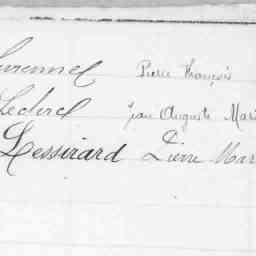 Pierre François
Leclerc Jean Auguste Mari
Lessirard Pierre Mar